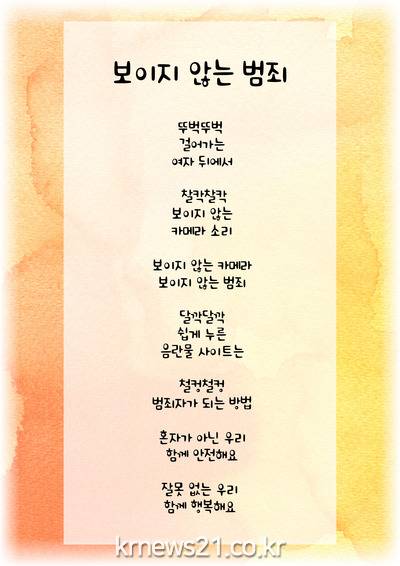 보이지 않는 범죄
뚜벅뚜벅
걸어가는
여자 뒤에서
찰칵찰칵
보이지 않는
카메라 소리
보이지 않는 카메라
보이지 않는 범죄
달깍달깍
쉽게 누른
음란물 사이트는
철컹철컹
범죄자가 되는 방법
혼자가 아닌 우리
함께 안전해요
잘못 없는 우리
함께 행복해요
krnews21.co.kr